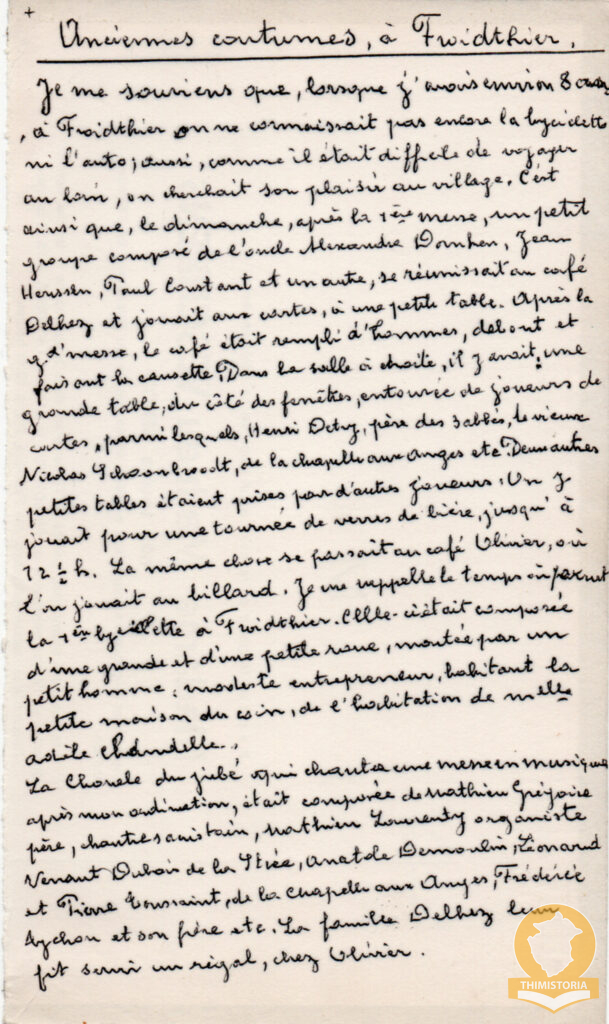 +
Anciennes coutumes, à Froidthier.
Je me souviens que, lorsque j'avais environ 8 ans
, à Froidthier on ne connaissait pas encore la bycidette
ni l'auto; aussi, comme il était difficile de voyager
au loin, on cherchait son plaisir au village. C'est
ainsi que, le dimanche, après la 1ère messe, un petit
groupe composé de l'oncle Alexandre Dornhen, Jean
Henssen, Paul Constant et un autre, se réunissait au café
Delhez et jouait aux cartes, à une petite table. Après la
gd' messe, le café était rempli d'hommes, debout et
faisant la causette. Dans la salle à droite, il y avait, une
grande table, du côté des fenêtres, entourée de joueurs de
cartes, parmi lesquels, Henri Detry, père des 3 abbés, le vieux
Nicolas Schoonbroodt, de la chapelle aux Anges etc. Deux autres
petites tables étaient prises par d'autres joueurs. On y
jouait pour une tournée de verres de bière, jusqu'à
12 1/2 h. La même chose se passait au café Olivier, où
l'on jouait au billard. Je me rappelle le temps où parut
la 1ère bycidette à Froidthier. Celle-ci était composée
d'une grande et d'une petite roue, montée par un
petit homme, modeste entrepreneur, habitant la
petite maison du coin, de l'habitation de Melle
Adèle Chandelle.
La Chorale du jubé qui chanta une messe en musique
après mon ordination, était composée de Mathieu Grégoire
père, chantre sacristain, Mathieu Laurenty organiste
Venant Dubois de la Stiée, Anatole Demoulin, Léonard
et Pierre Toussaint, de la chapelle aux Anges, Frédéric
Lychon et son frère etc. La famille Delhez leur
fit servir un régal, chez Olivier.
THIMISTORIA